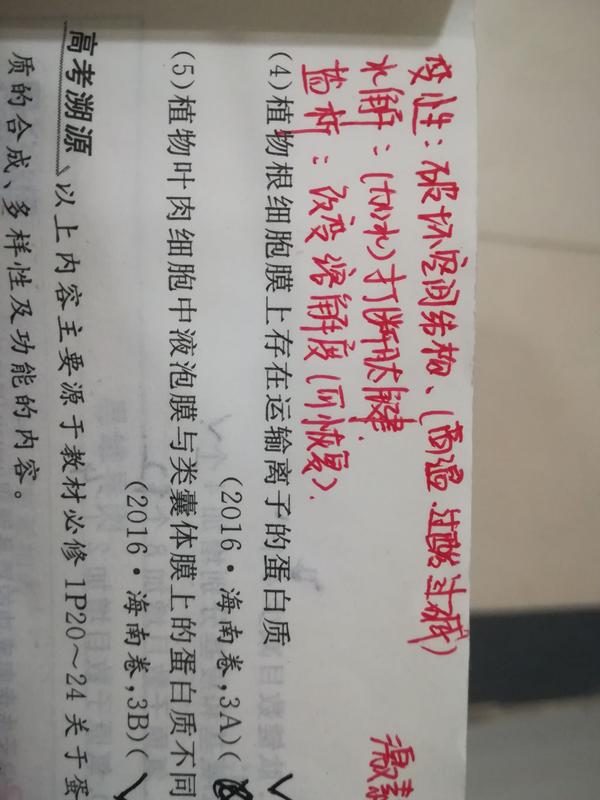 变性：破坏空间结构、(高温.过酸过碱)
水解：(加水)打断肽键.
盐析：改变溶解度(可恢复).
激素
(4)植物根细胞膜上存在运输离子的蛋白质
(2016·海南卷,3A)( √
(5)植物叶肉细胞中液泡膜与类囊体膜上的蛋白质不同
(2016·海南卷,3B)( √
高考溯源 以上内容主要源于教材必修1P20～24关于蛋
质的合成、多样性及功能的内容。